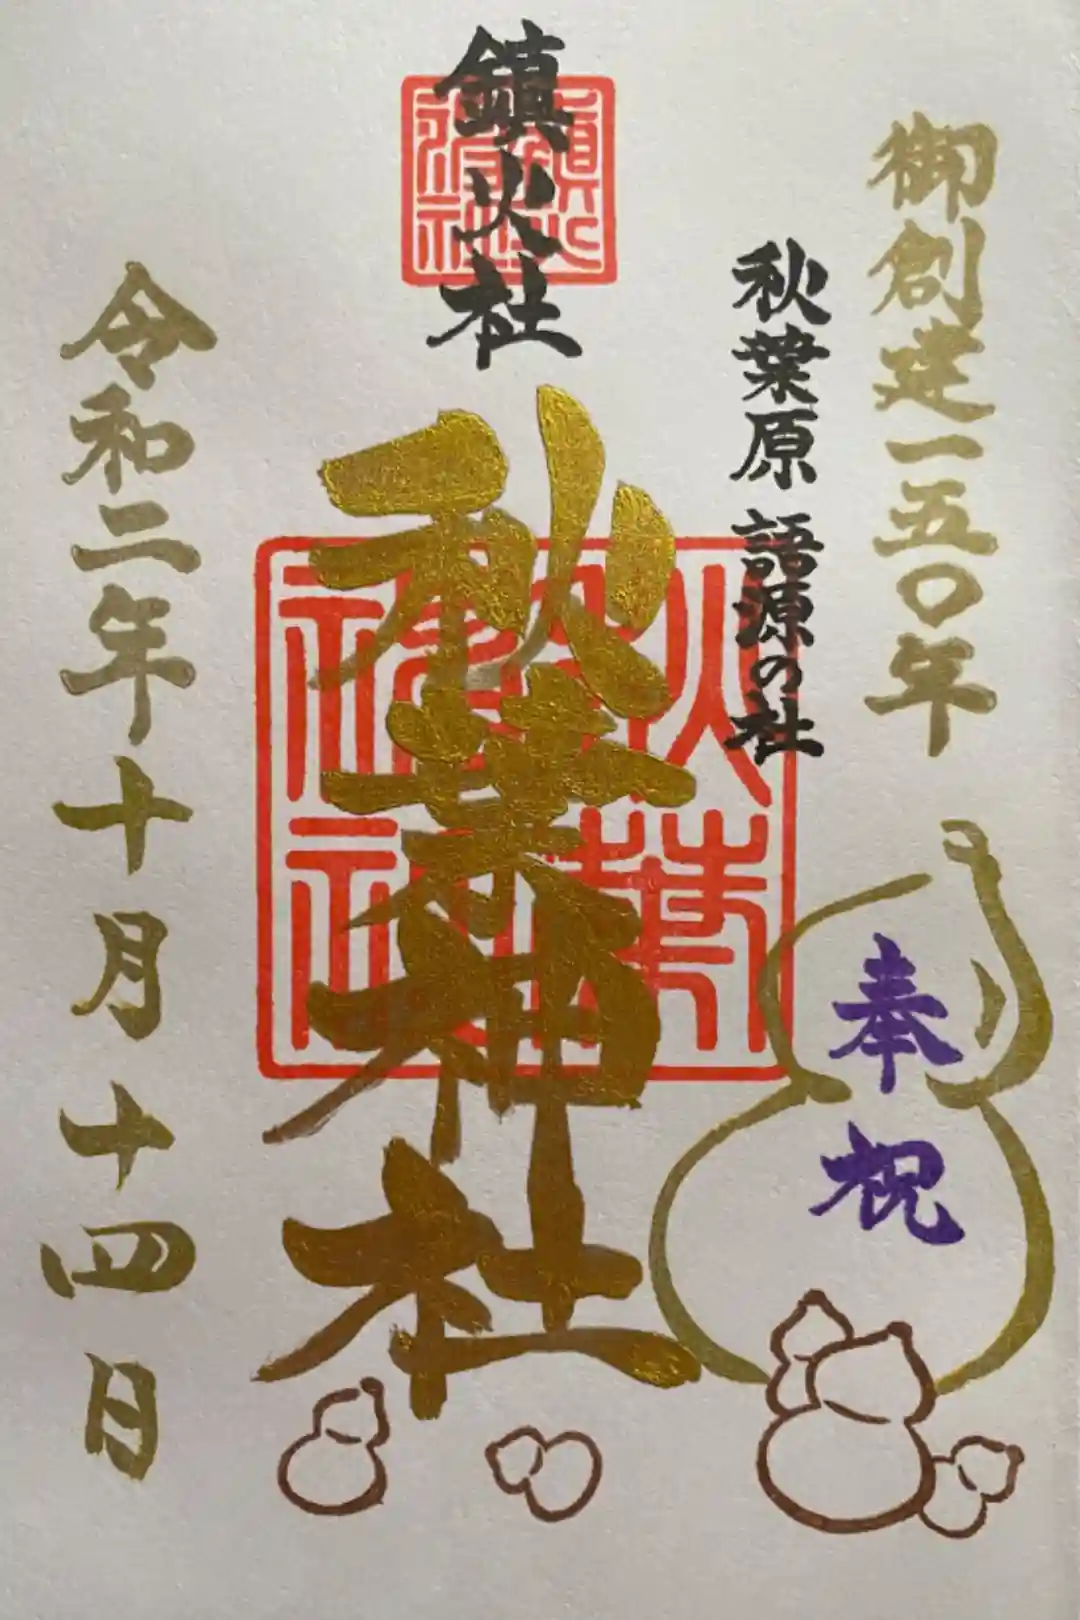 御創建一五〇年
奉祝
秋葉原 語源の社
鎮火社
秋葉神社
令和二年十月十四日